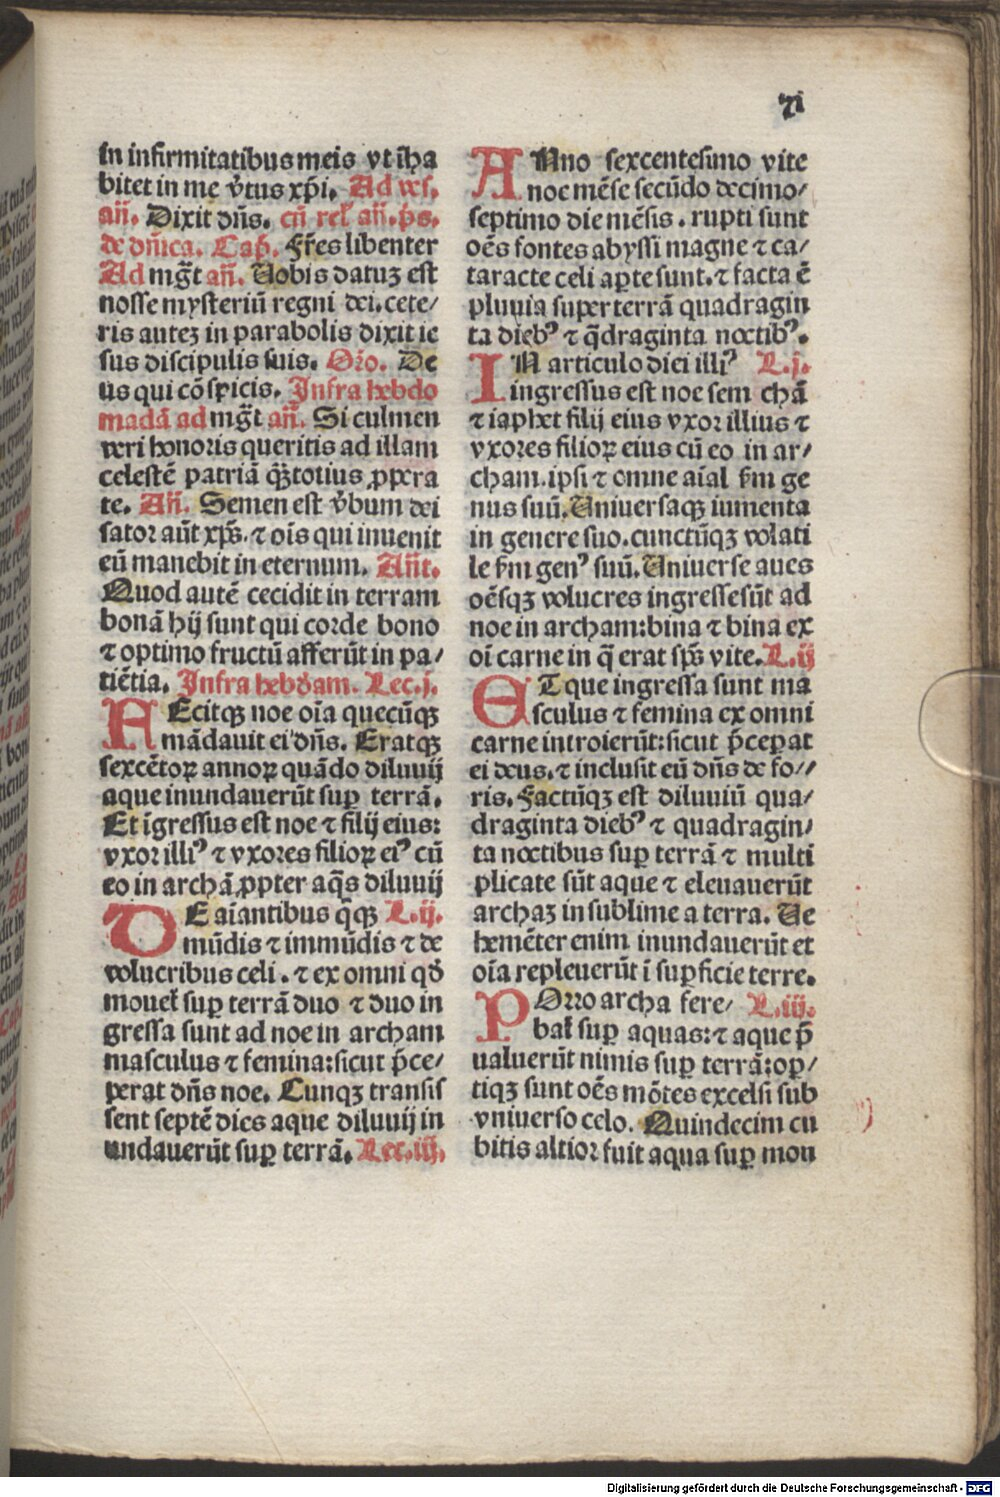 71
in infirmitatibus meis vt īha
bitet in me v̄tus xp̄i. Ad ves.
añ. Dixit dñs. cū rel̄ añ. p̄s.
de dñica. Cap̄. Fr̄es libenter
Ad mgt̄ añ. Uobis datuꝫ est
nosse mysteriū regni dei. cete/
ris auteꝫ in parabolis dixit ie
sus discipulis suis. Oro. De
us qui cōspicis. Infra hebdo
madā ad mgt̄ añ. Si culmen
veri honoris queritis ad illam
celestē patriā qꝫtotius ꝓpera
te. Añ. Semen est v̄bum dei
sator aūt xp̄s. ⁊ ois qui inuenit
eū manebit in eternum. Añt.
Quod autē cecidit in terram
bonā hij sunt qui corde bono
⁊ optimo fructū afferūt in pa/
tiētia. Infra hebdam. Lec. j.
FEcitqꝫ noe oīa quecūqꝫ
mādauit ei dñs. Eratqꝫ
sexcētoꝝ annoꝝ quādo diluuij
aque inundauerūt suꝑ terrā.
Et īgressus est noe ⁊ filij eius:
vxor illiꝰ ⁊ vxores filioꝝ eiꝰ cū
eo in archā ꝓpter aq̄s diluuij
DE aīantibus q̄qꝫ L. ij.
mūdis ⁊ immūdis ⁊ de
volucribus celi. ⁊ ex omni qd̄
mouet̄ suꝑ terrā duo ⁊ duo in
gressa sunt ad noe in archam
masculus ⁊ femina: sicut p̄ce/
perat dñs noe. Cunqꝫ transis
sent septē dies aque diluuij in
undauerūt suꝑ terrā. Lec. iij.
ANno sexcentesimo vite
noe mēse secūdo decimo/
septimo die mēsis. rupti sunt
oēs fontes abyssi magne ⁊ ca/
taracte celi aꝑte sunt. ⁊ facta ē
pluuia super terrā quadragin
ta diebꝰ ⁊ q̄draginta noctibꝰ.
IN articulo diei illiꝰ L. j.
ingressus est noe sem chā
⁊ iaphet filij eius vxor illius ⁊
vxores filioꝝ eius cū eo in ar/
cham. ipsi ⁊ omne aīal s̄m ge
nus suū. Uniuersaqꝫ iumenta
in genere suo. cunctūqꝫ volati
le s̄m genꝰ suū. Uniuerse aues
oēsqꝫ volucres ingresse sūt ad
noe in archam: bina ⁊ bina ex
oī carne in q̄ erat sp̄s vite. L. ij
ET que ingressa sunt ma
sculus ⁊ femina ex omni
carne introierūt: sicut p̄ceꝑat
ei deus. ⁊ inclusit eū dñs de fo//
ris. Factūqꝫ est diluuiū qua/
draginta diebꝰ ⁊ quadragin/
ta noctibus suꝑ terrā ⁊ multi
plicate sūt aque ⁊ eleuauerūt
archaꝫ in sublime a terra. Ue
hemēter enim inundauerūt et
oīa repleuerūt ī suꝑficie terre.
POrro archa fere/ L. iij.
bat̄ suꝑ aquas: ⁊ aque p̄
ualuerūt nimis suꝑ terrā: oꝑ/
tiqꝫ sunt oēs mōtes excelsi sub
vniuerso celo. Quindecim cu
bitis altior fuit aqua suꝑ mon
Digitalisierung gefördert durch die Deutsche Forschungsgemeinschaft - DFG